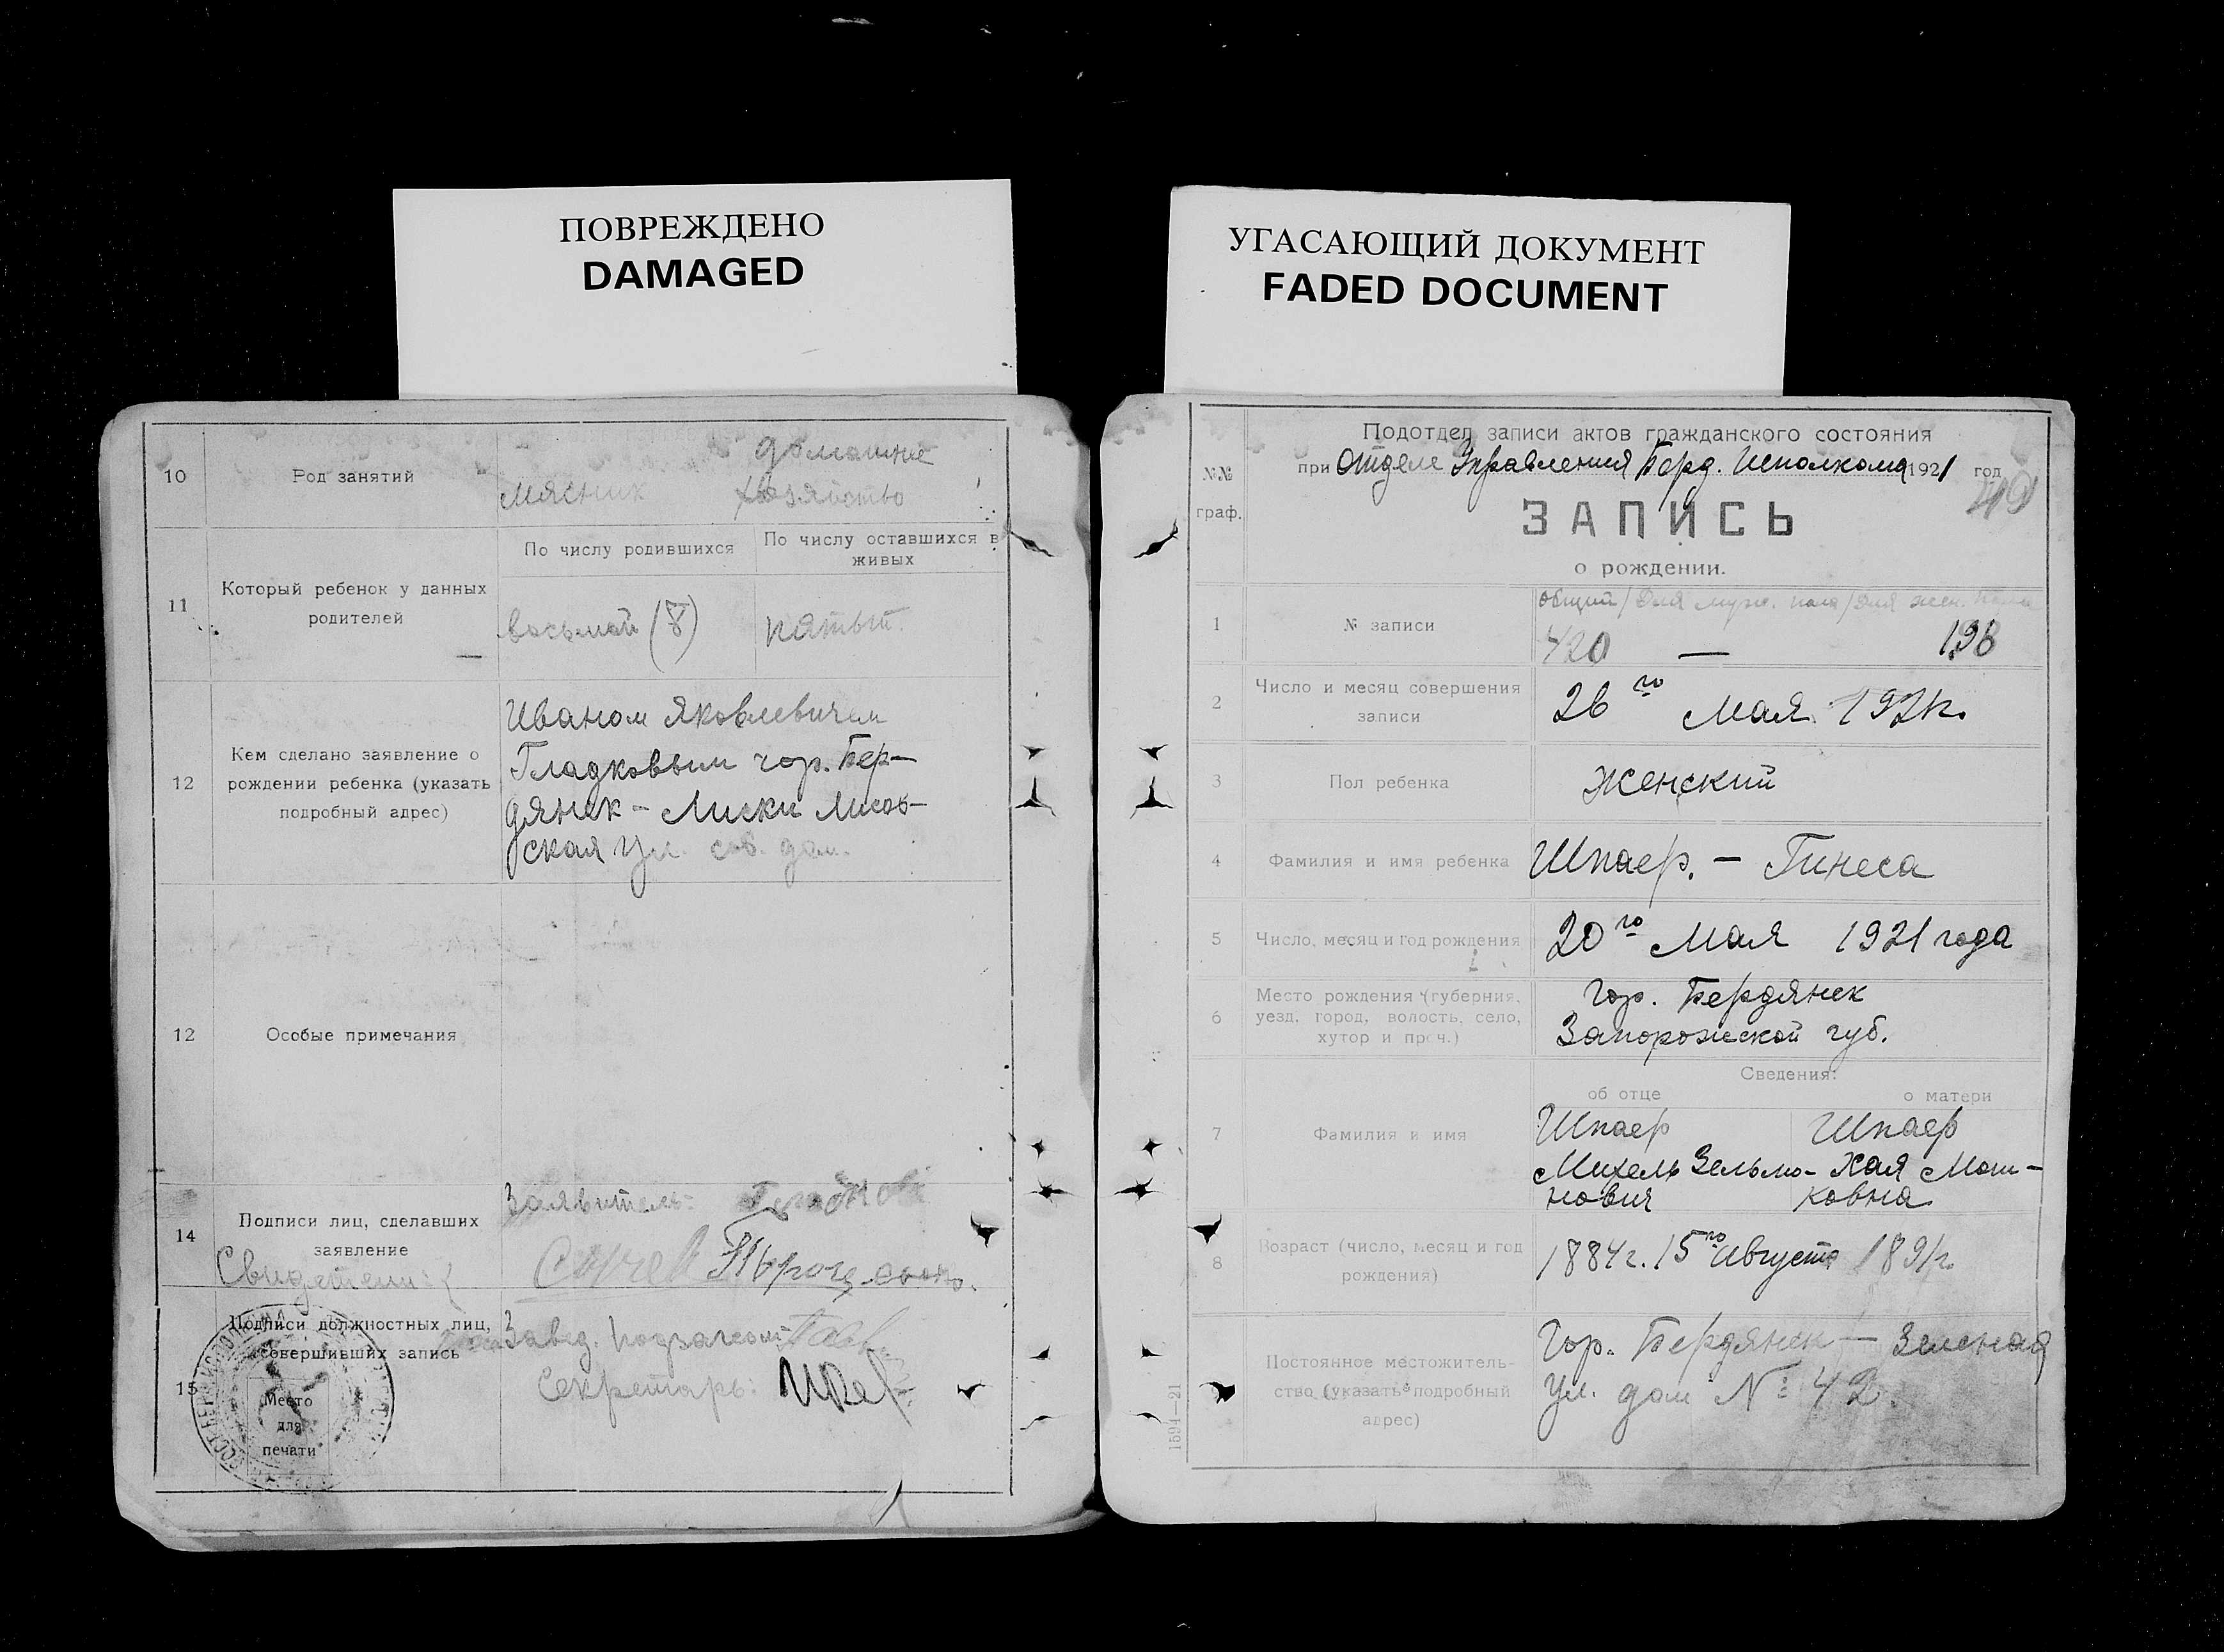 ПОВРЕЖДЕНО
DAMAGED
УГАСАЮЩИЙ ДОКУМЕНТ
FADED DOCUMENT
10
Род занятий
мясник
домашнее
хозяйство
11
Который ребенок у данных
родителей
По числу родившихся
По числу оставшихся в
живых
восьмой (8)
пятый.
12
Кем сделано заявление о
рождении ребенка (указать
подробный адрес)
Иваном Яковлевичем
Гладковым гор. Бер-
дянск - Лиски Лисов-
ская ул. соб. дом.
12
Особые примечания
14
Подписи лиц, сделавших
заявление
Свидетели:
Заявитель:
15
Подписи должностных лиц,
совершивших запись
Место
для
печати
Завед. подзагсом:
Секретарь:
№№
граф.
Подотдел записи актов гражданского состояния
при Отделе Управления Берд. Исполкома 1921 год
49
ЗАПИСЬ
о рождении.
1
№ записи
общий / для муж. пола / для жен. пола
420 — 198
2
Число и месяц совершения
записи
26го Мая 1921г.
3
Пол ребенка
Женский
4
Фамилия и имя ребенка
Шпаер. - Гинеса
5
Число, месяц и год рождения
20го Мая 1921 года
6
Место рождения (губерния,
уезд, город, волость, село,
хутор и проч.)
Гор. Бердянск
Запорожской губ.
Сведения:
об отце
о матери
7
Фамилия и имя
Шпаер
Михель Зельмо-
нович
Шпаер
Хая Мош-
ковна
8
Возраст (число, месяц и год
рождения)
1884г. 15го Августа
1891г.
Постоянное местожитель-
ство (указать подробный
адрес)
Гор. Бердянск — Зеленая
ул. дом № 42.
1594—21